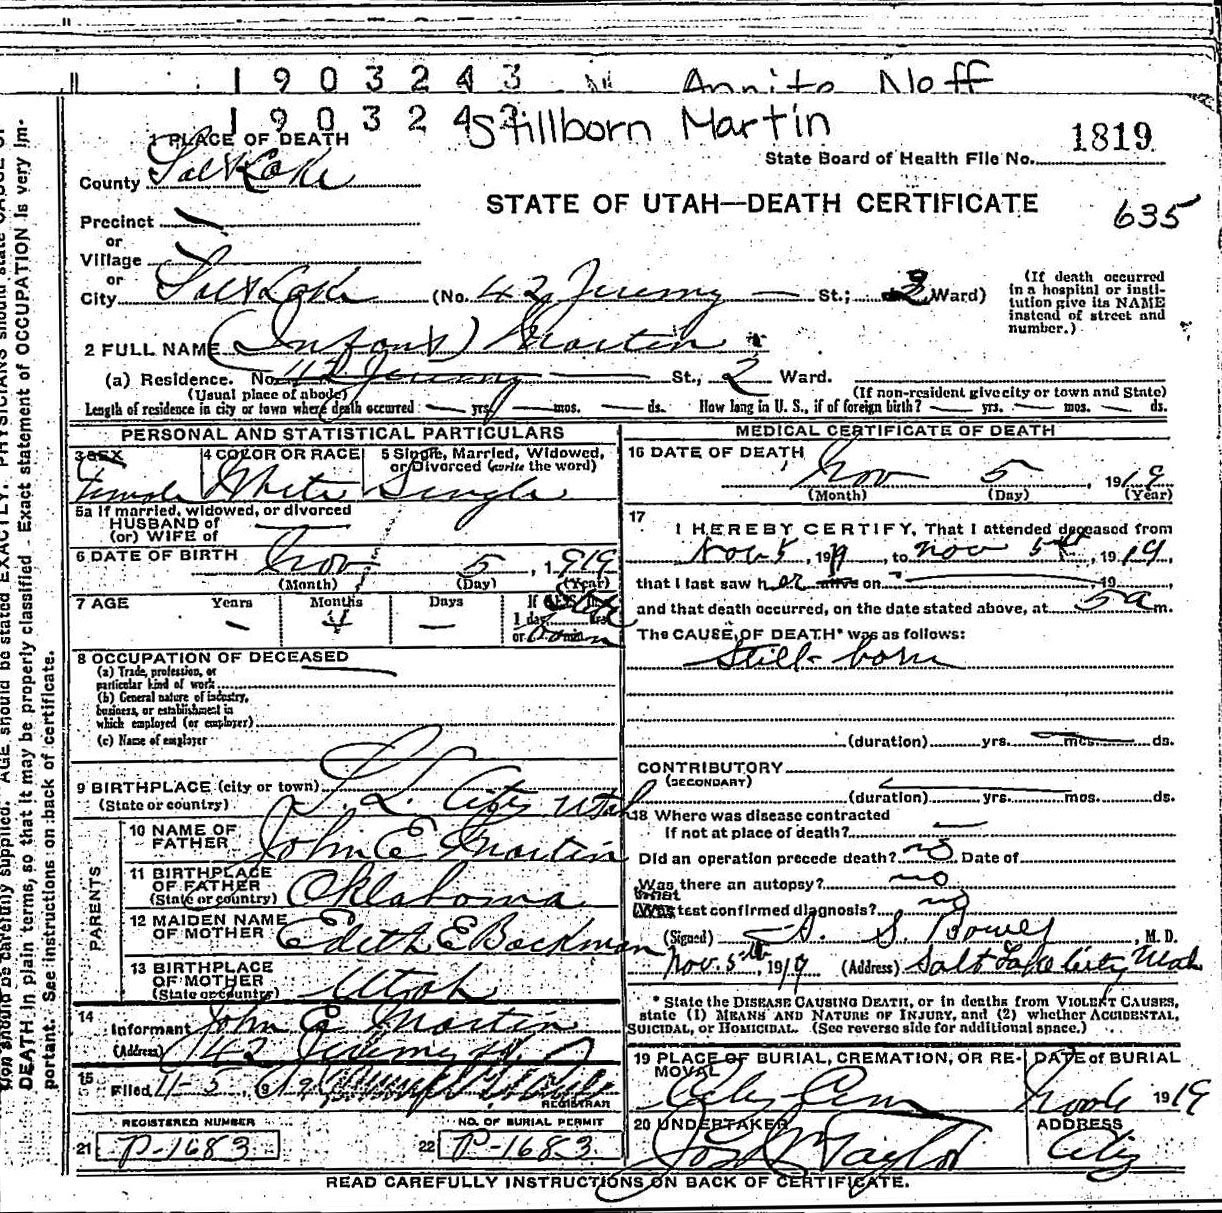 1903243 Annita Neff
190324
Stillborn Martin
1 PLACE OF DEATH
1819
State Board of Health File No.
County Salt Lake
STATE OF UTAH—DEATH CERTIFICATE
635
Precinct
or
Village
or
City Salt Lake (No. 42 Jeremy St.; 2 Ward)
(If death occurred
in a hospital or insti-
tution give its NAME
instead of street and
number.)
2 FULL NAME (Infant) Martin
(a) Residence. No. 42 Jeremy St., 2 Ward.
(Usual place of abode) (If non-resident give city or town and State)
Length of residence in city or town where death occurred yrs. mos. ds. How long in U. S., if of foreign birth? yrs. mos. ds.
PERSONAL AND STATISTICAL PARTICULARS
3 SEX 4 COLOR OR RACE 5 Single, Married, Widowed,
or Divorced (write the word)
Female White Single
5a If married, widowed, or divorced
HUSBAND of
(or) WIFE of
6 DATE OF BIRTH Nov 5, 1919
(Month) (Day) (Year)
7 AGE Years Months Days If LESS than
1 day hrs.
or min.
8 OCCUPATION OF DECEASED
(a) Trade, profession, or
particular kind of work
(b) General nature of industry,
business, or establishment in
which employed (or employer)
(c) Name of employer
9 BIRTHPLACE (city or town) S. L. City Utah
(State or country)
PARENTS
10 NAME OF
FATHER John E Martin
11 BIRTHPLACE
OF FATHER
(State or country) Oklahoma
12 MAIDEN NAME
OF MOTHER Edith E Backman
13 BIRTHPLACE
OF MOTHER
(State or country) Utah
14
Informant John E Martin
(Address) 42 Jeremy St
15
Filed 11-5, 19
REGISTRAR
REGISTERED NUMBER NO. OF BURIAL PERMIT
21 P-1683 22 P-1683
MEDICAL CERTIFICATE OF DEATH
16 DATE OF DEATH
Nov 5, 1919
(Month) (Day) (Year)
17
I HEREBY CERTIFY, That I attended deceased from
Nov 5, 1919, to Nov 5th, 1919,
that I last saw her alive on , 19 ,
and that death occurred, on the date stated above, at 5 a m.
The CAUSE OF DEATH* was as follows:
Still-born
(duration) yrs. mos. ds.
CONTRIBUTORY
(SECONDARY)
(duration) yrs. mos. ds.
18 Where was disease contracted
if not at place of death?
Did an operation precede death? no Date of
Was there an autopsy? no
What test confirmed diagnosis? no
(Signed) S. Bowes, M. D.
Nov. 5th, 1919 (Address) Salt Lake City Utah
* State the DISEASE CAUSING DEATH, or in deaths from VIOLENT CAUSES,
state (1) MEANS AND NATURE OF INJURY, and (2) whether ACCIDENTAL,
SUICIDAL, or HOMICIDAL. (See reverse side for additional space.)
19 PLACE OF BURIAL, CREMATION, OR RE-
MOVAL
City Cem
DATE of BURIAL
Nov 6 1919
20 UNDERTAKER
Jos Wm Taylor
ADDRESS
City
READ CAREFULLY INSTRUCTIONS ON BACK OF CERTIFICATE.
tion should be carefully supplied. AGE should be stated EXACTLY. PHYSICIANS should state CAUSE OF
DEATH in plain terms, so that it may be properly classified. Exact statement of OCCUPATION is very im-
portant. See instructions on back of certificate.